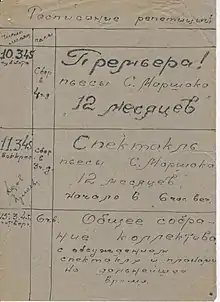 Расписание репетиций
10.3.45
Сбор
в
4 ч.
Премьера!
пьесы С. Маршака
"12 месяцев"
11.3.45
Сбор
в
3 ч.
Спектакль
пьесы С. Маршака
"12 месяцев"
Начало в 6 час. веч.
6 ч. в.
Общее собра-
ние коллектива
с обсуждением
спектакля и планами
на дальнейшее
время.